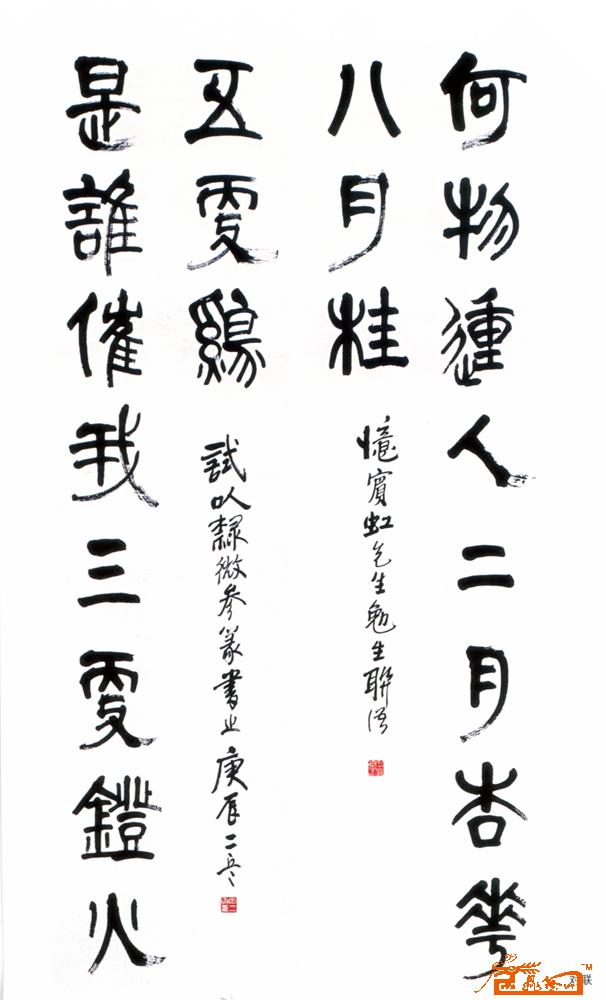 何物動人二月杏花
八月桂
憶賓虹先生勉生聯语
是誰催我三更鐙火
五更鷄
試以隸微參篆書之 庚辰
TM
对联